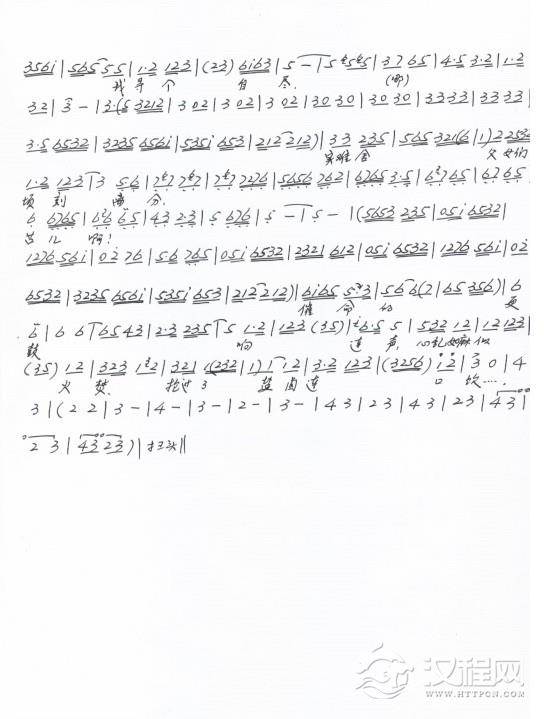 3561 | 565 55 | 1·2 123 | (23) 6163 | 5 - | 5 #4545 | 37 65 | 4·5 3·2 | 1·2
我寻个 自尽. (哪)
32 | 3 - | 3·(5 3212 | 3 02 | 3 02 | 3 02 | 30 30 | 30 30 | 33 33 | 33 33 |
3·5 6532 | 3235 6561 | 5351 653 | 212 212) | 33 235 | 565 321(6 | 1) 2 2532
实难舍 父女们
1·2 123 | 3 56 | 7#7 7#7 | 7#7 7276 | 5656 7672 | 6765 3·5 | 6#765 | 6765
顷刻 两分.
6 6765 | 6#6 65 | 43 2·3 | 5 676 | 5 - | 5 - | (5653 235 | 051 6532 |
儿啊!
1276 561 | 02 76 | 56 765 | 051 6532 | 2321 612 | 051 6532 | 1276 561 | 02
6532 | 3235 6561 | 5351 653 | 212 212) | 6165 5·#3 | 56 6(7 | 65 356) | 6
催命的 更
6 | 6 6 | 6543 | 2·3 235 | 5 1·2 | 123 (35) | 6·5 5 | 532 12 | 12 123 |
鼓 响 连声, 心乱如麻似
(35) 12 | 323 1#2 | 321 1(232 | 1) 1 12 | 3·2 123 | (3256) 12 | 3 0 | 4
火焚. 抢过了 盐卤连 口饮……
3 | (2 2 | 3 - | 4 - | 3 - | 2 - | 3 - | 4 3 | 23 | 43 | 23 | 43 |
2 3 | 43 23 ) | 扫头 ||
汉程网
WWW.HTTPCN.COM